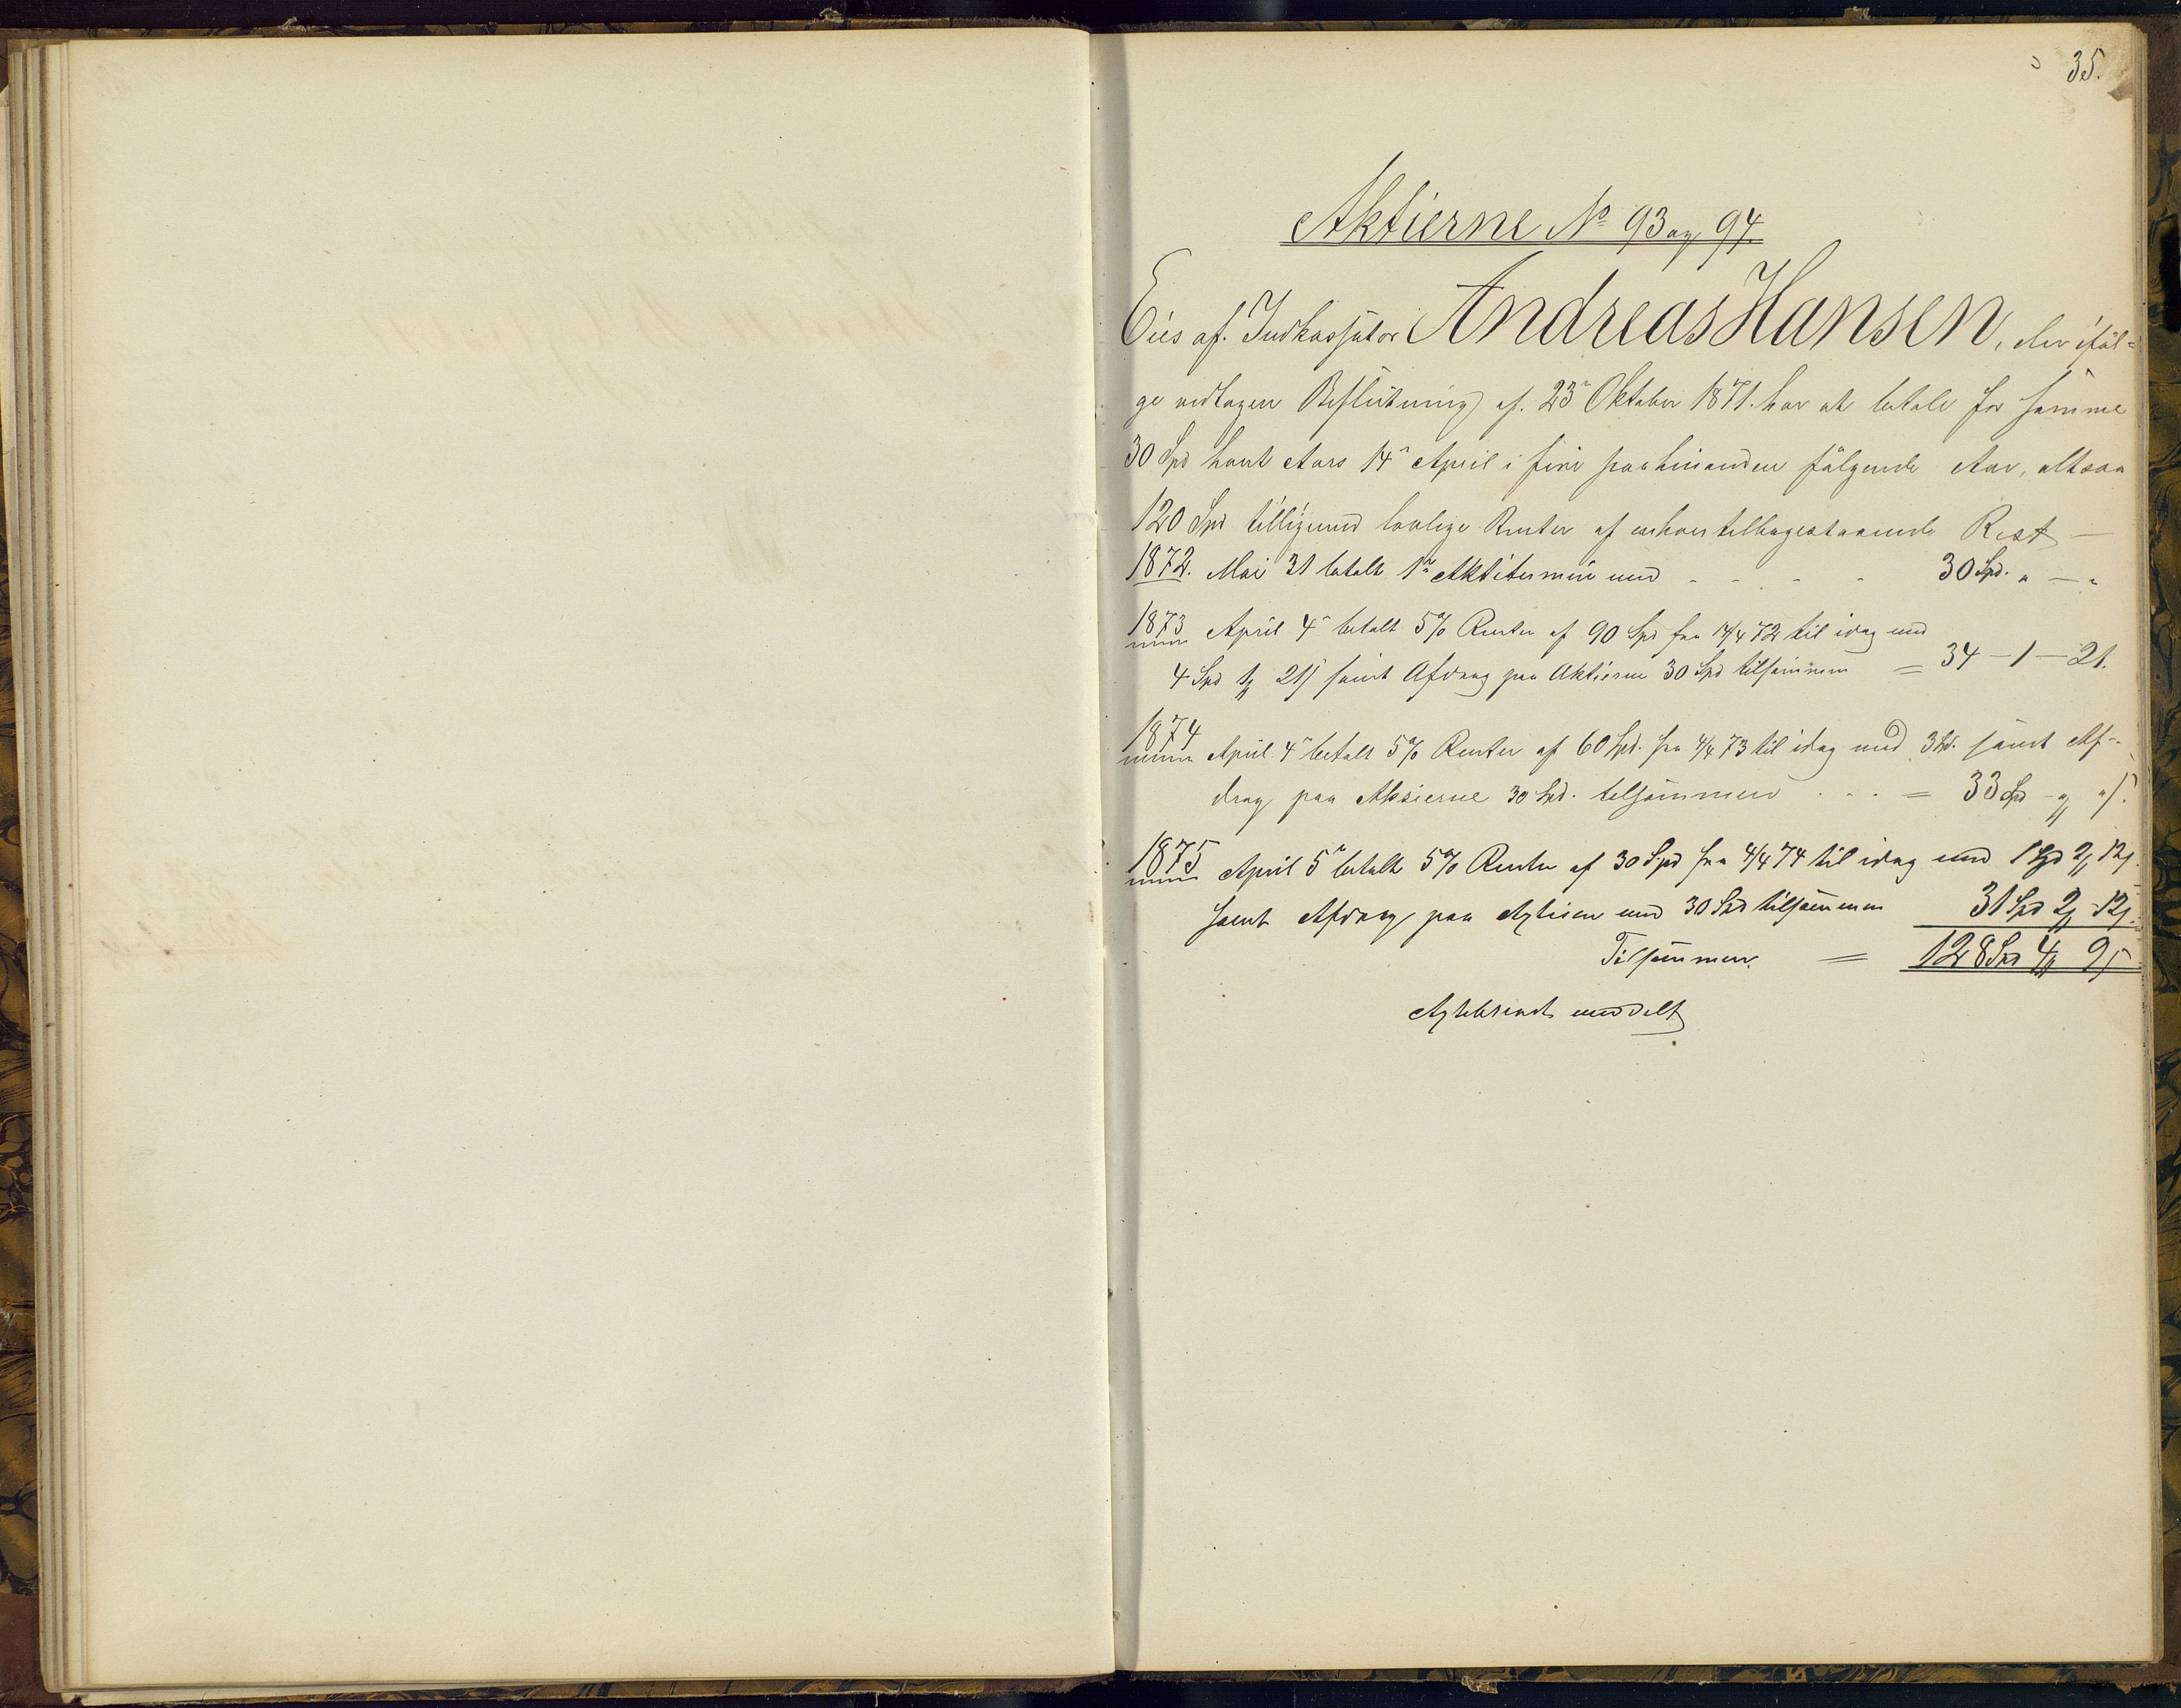 35.
Aktierne No 93 og 94.
Eies af Indkassator Andreas Hansen, der iføl=
ge vedtagen Beslutning af 23de Oktober 1871. har at betale for samme
30 Spd hvert Aars 14de April i fire paahinanden følgende Aar, altsaa
120 Spd tilligemed lovlige Renter af enhver tilbagestaaende Rest —
1872. Mai 31 betalt 1ste Aktietermin med - - - - 30 Spd. " — "
1873 April 4de betalt 5% Renter af 90 Spd fra 14/4 72 til idag med
4 Spd 1 ℔ 21 ß samt Afdrag paa Aktierne 30 Spd tilsammen = 34 — 1 — 21.
1874 April 4de betalt 5% Renter af 60 Spd. fra 4/4 73 til idag med 3 Spd. samt Af-
drag paa Aksierne 30 Spd. tilsammen . . . = 33 Spd - " ℔ " ß.
1875 April 5te betalt 5% Renter af 30 Spd fra 4/4 74 til idag med 1 Spd 2 ℔ 12 ß.
samt Afdrag paa Agtien med 30 Spd tilsammen 31 Spd 2 ℔ - 12 ß.
Tilsammen. = 128 Spd 4 ℔ 9 ß
Agtiebrevet meddelt